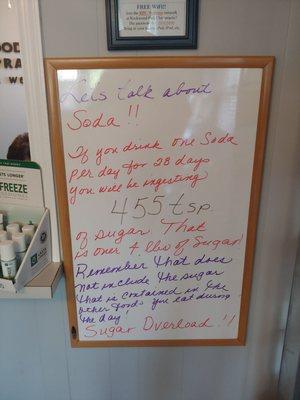 FREE WiFi!
Lets talk about
Soda!!
If you drink one Soda
per day for 28 days
you will be ingesting
455 tsp.
of sugar That
is over 4 lbs of Sugar!
Remember that does
not include the sugar
that is contained in the
other foods you eat during
the day!
Sugar Overload!!
LONGER
FREEZE